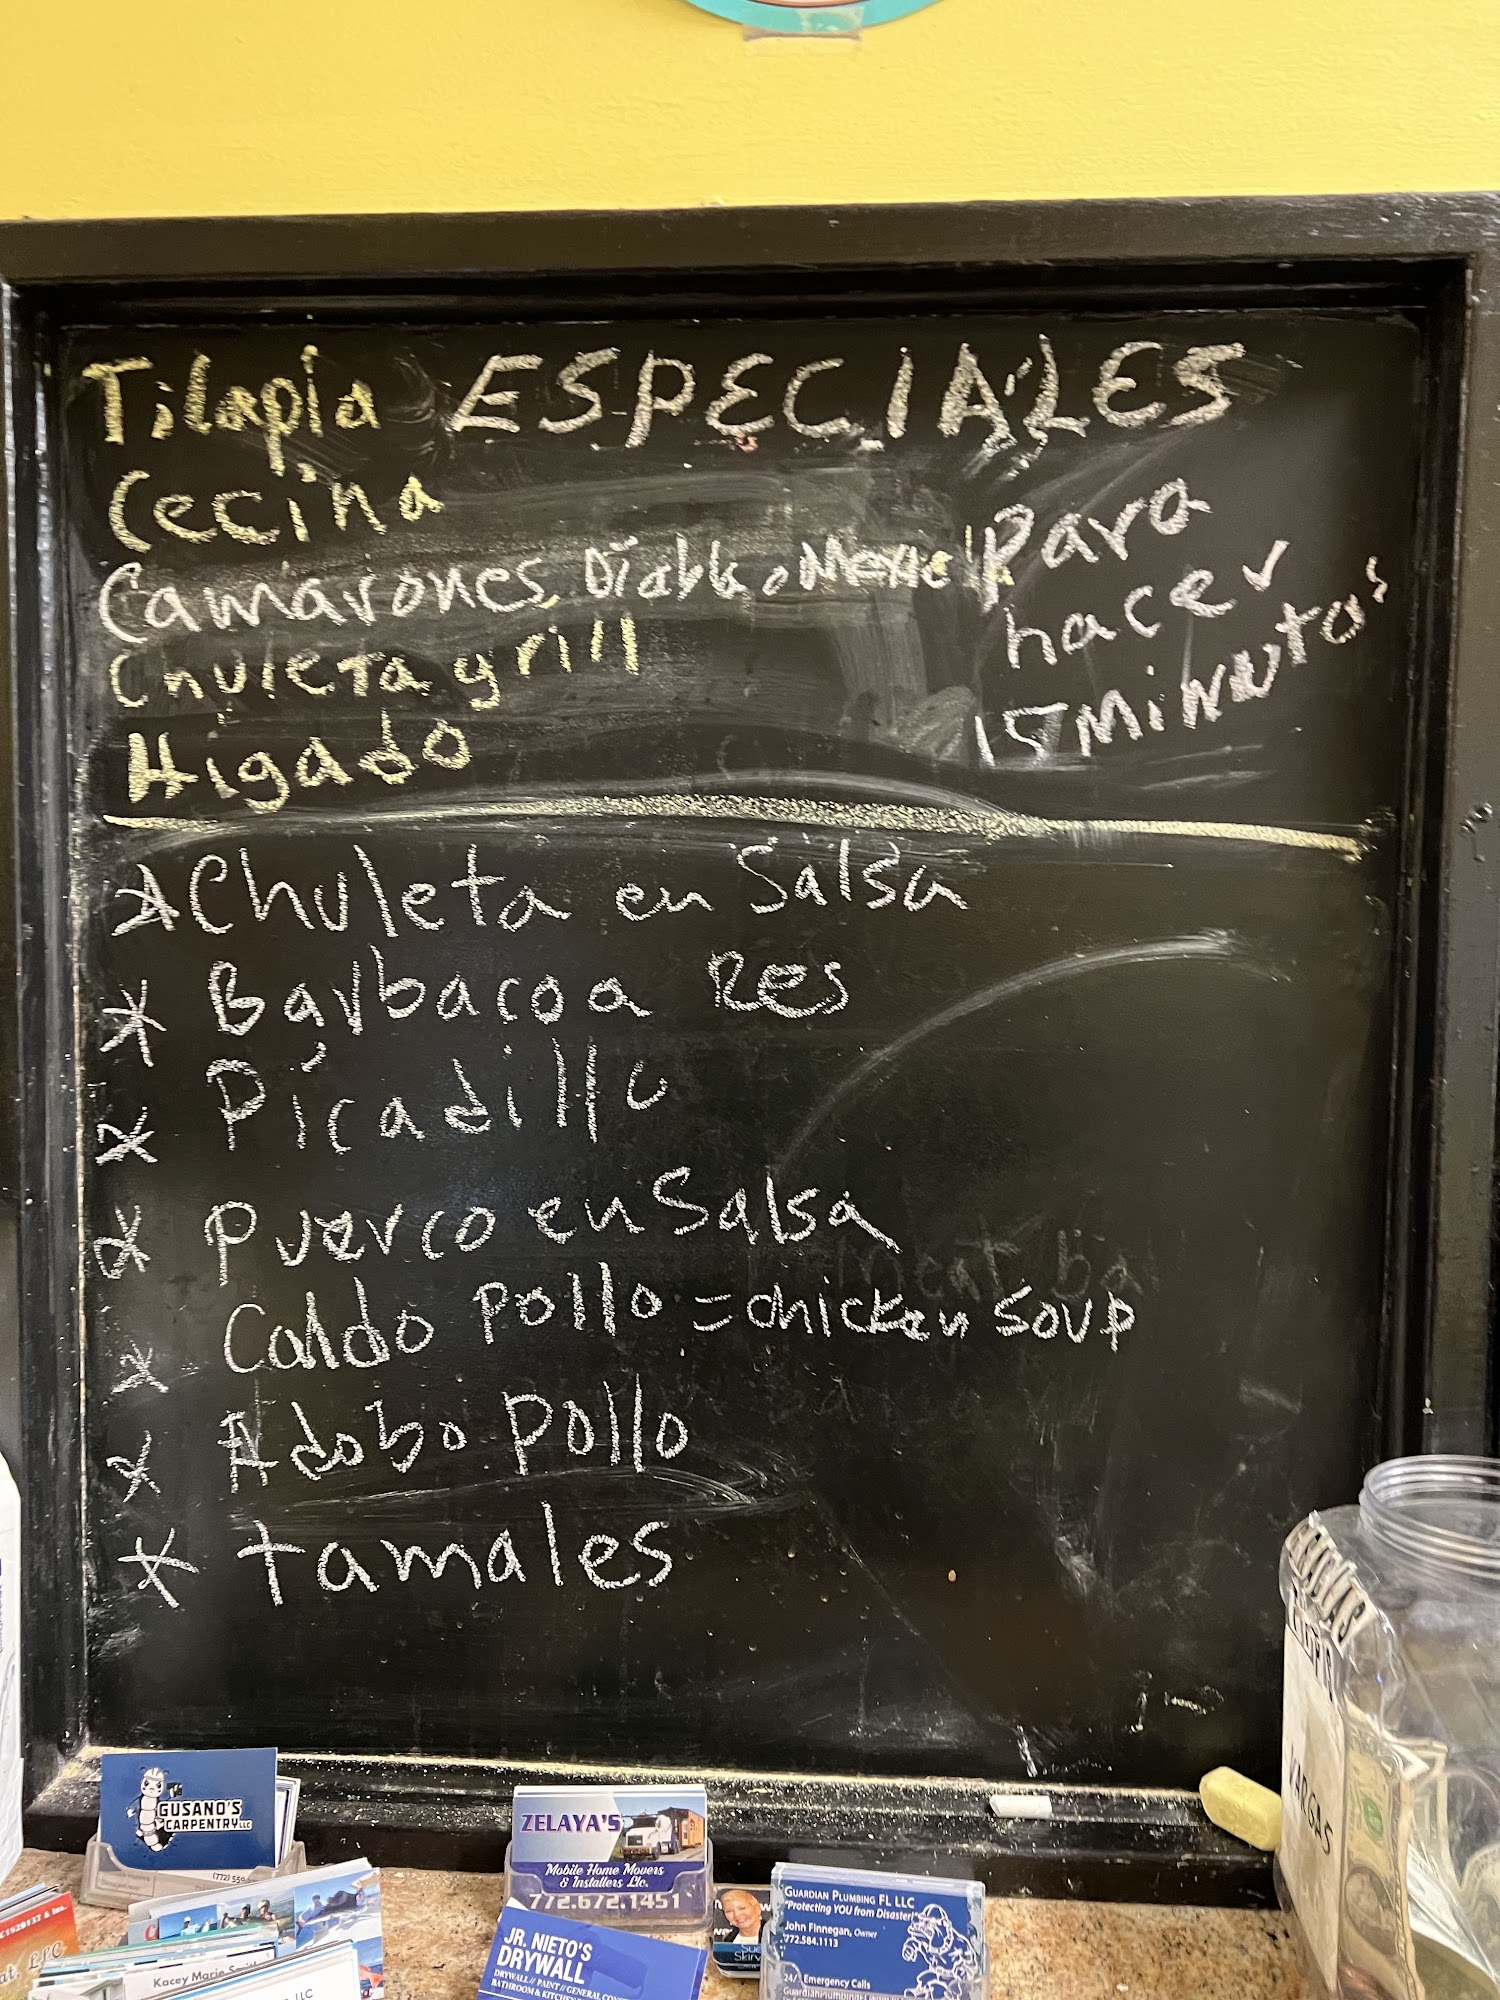 Tilapia ESPECIALES
Cecina
Camarones Diabla o Mexic
Para
hacer
15 Minutos
Chuleta grill
Higado
* Chuleta en Salsa
* Barbacoa Res
* Picadillo
* Puerco en Salsa
* Caldo Pollo = chicken soup
* Adobo Pollo
* tamales
VARGAS
GUSANO'S
CARPENTRY LLC
(772) 559
ZELAYA'S
Mobile Home Movers
& Installers Llc.
772.672.1451
JR. NIETO'S
DRYWALL
DRYWALL // PAINT // GENERAL
BATHROOM & KITCHEN
GUARDIAN PLUMBING FL LLC
"Protecting YOU from Disaster!"
John Finnegan, Owner
772.584.1113
24/ Emergency Calls
Kacey Marie
LLC